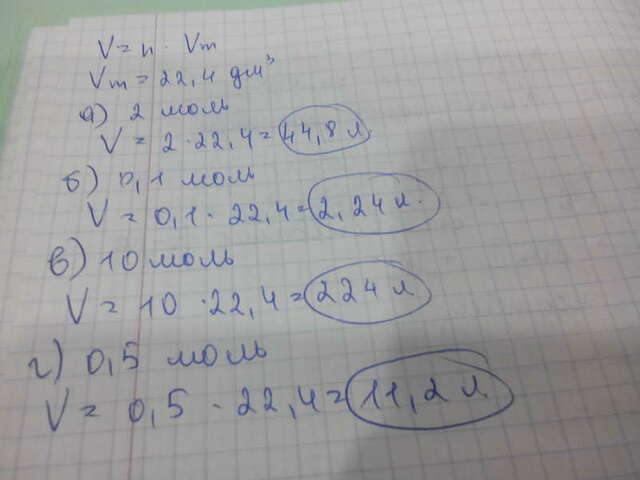 V = n · Vm
Vm = 22,4 дм³
а) 2 моль
V = 2 · 22,4 = 44,8 л
б) 0,1 моль
V = 0,1 · 22,4 = 2,24 л.
в) 10 моль
V = 10 · 22,4 = 224 л
г) 0,5 моль
V = 0,5 · 22,4 = 11,2 л.